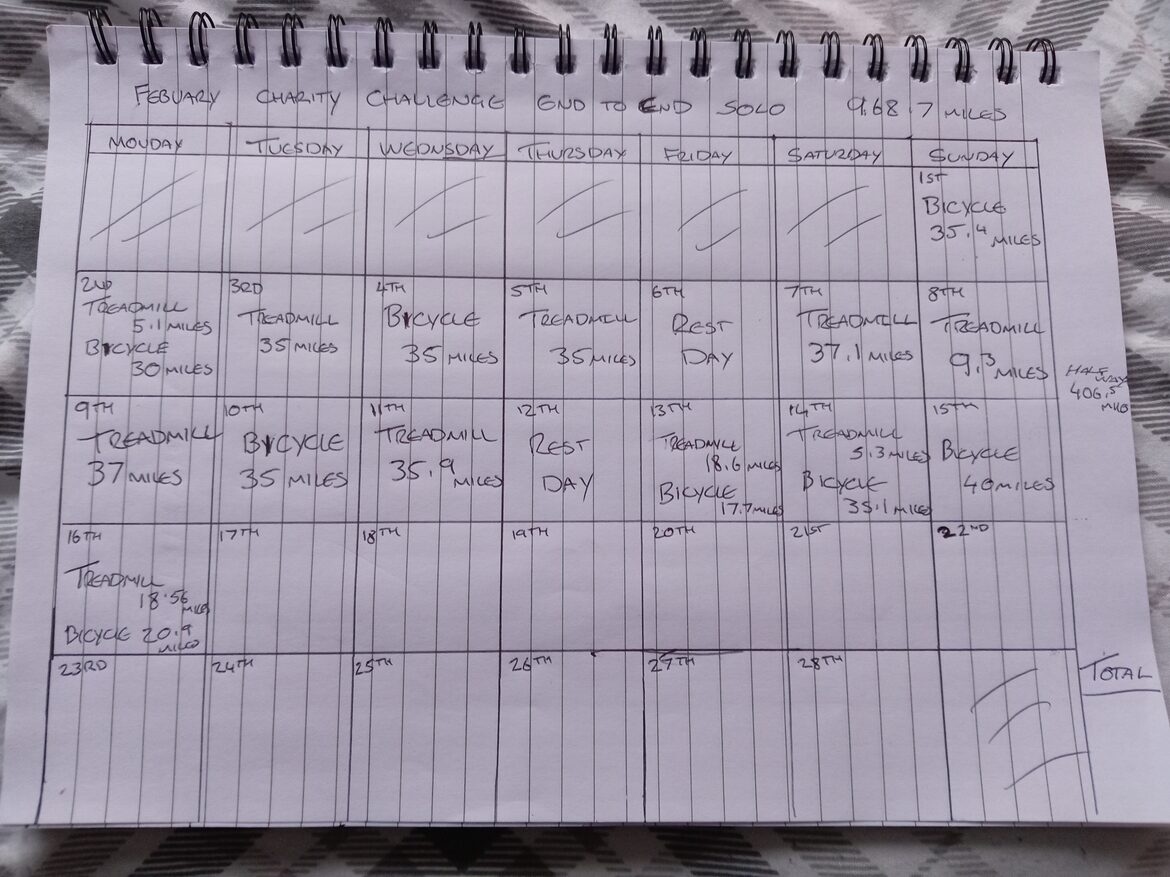 FEBUARY CHARITY CHALLENGE END TO END SOLO 968.7 MILES
MONDAY TUESDAY WEDNSDAY THURSDAY FRIDAY SATURDAY SUNDAY
1ST
BICYCLE
35.4 MILES
2ND
TREADMILL
5.1 MILES
BICYCLE
30 MILES
3RD
TREADMILL
35 MILES
4TH
BICYCLE
35 MILES
5TH
TREADMILL
35 MILES
6TH
REST
DAY
7TH
TREADMILL
37.1 MILES
8TH
TREADMILL
9.3 MILES
HALF
WAY
406.5
MILES
9TH
TREADMILL
37 MILES
10TH
BICYCLE
35 MILES
11TH
TREADMILL
35.9 MILES
12TH
REST
DAY
13TH
TREADMILL
18.6 MILES
BICYCLE
17.7 MILES
14TH
TREADMILL
5.3 MILES
BICYCLE
35.1 MILES
15TH
BICYCLE
40 MILES
16TH
TREADMILL
18.56
MILES
BICYCLE 20.9
MILES
17TH
18TH
19TH
20TH
21ST
22ND
23RD
24TH
25TH
26TH
27TH
28TH
TOTAL